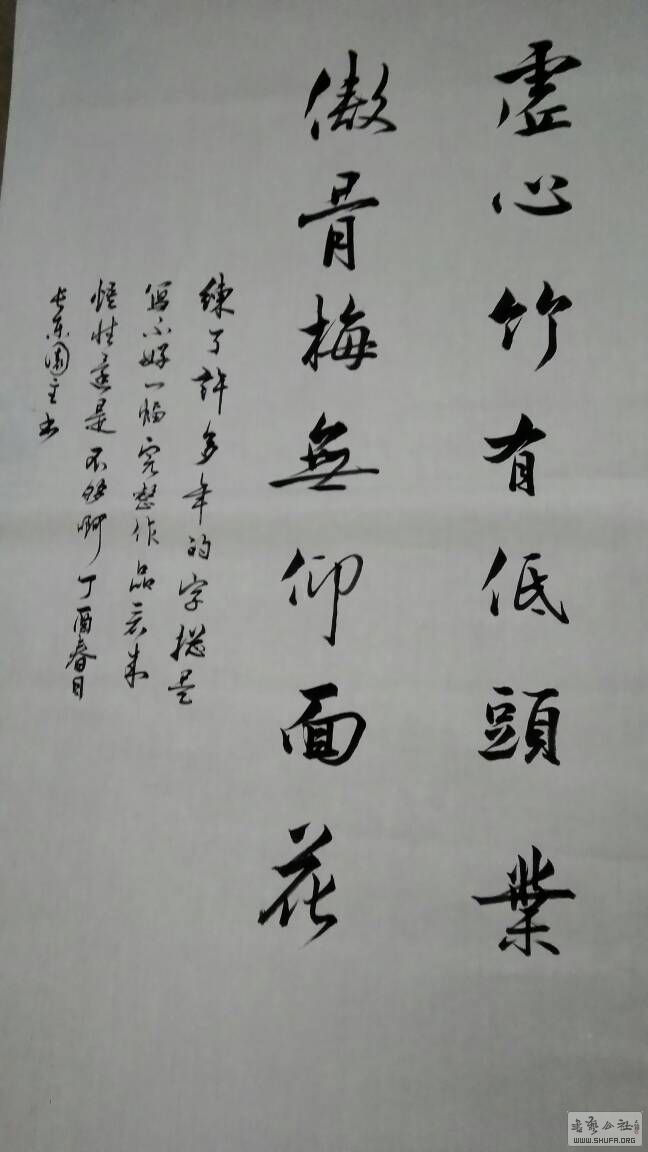 虛心竹有低頭業
傲骨梅無仰面花
練了許多年的字摠是
寫不好一幅完整作品看來
悟性還是不够啊丁酉春日
园主书
書藝公社
WWW.SHUFA.ORG